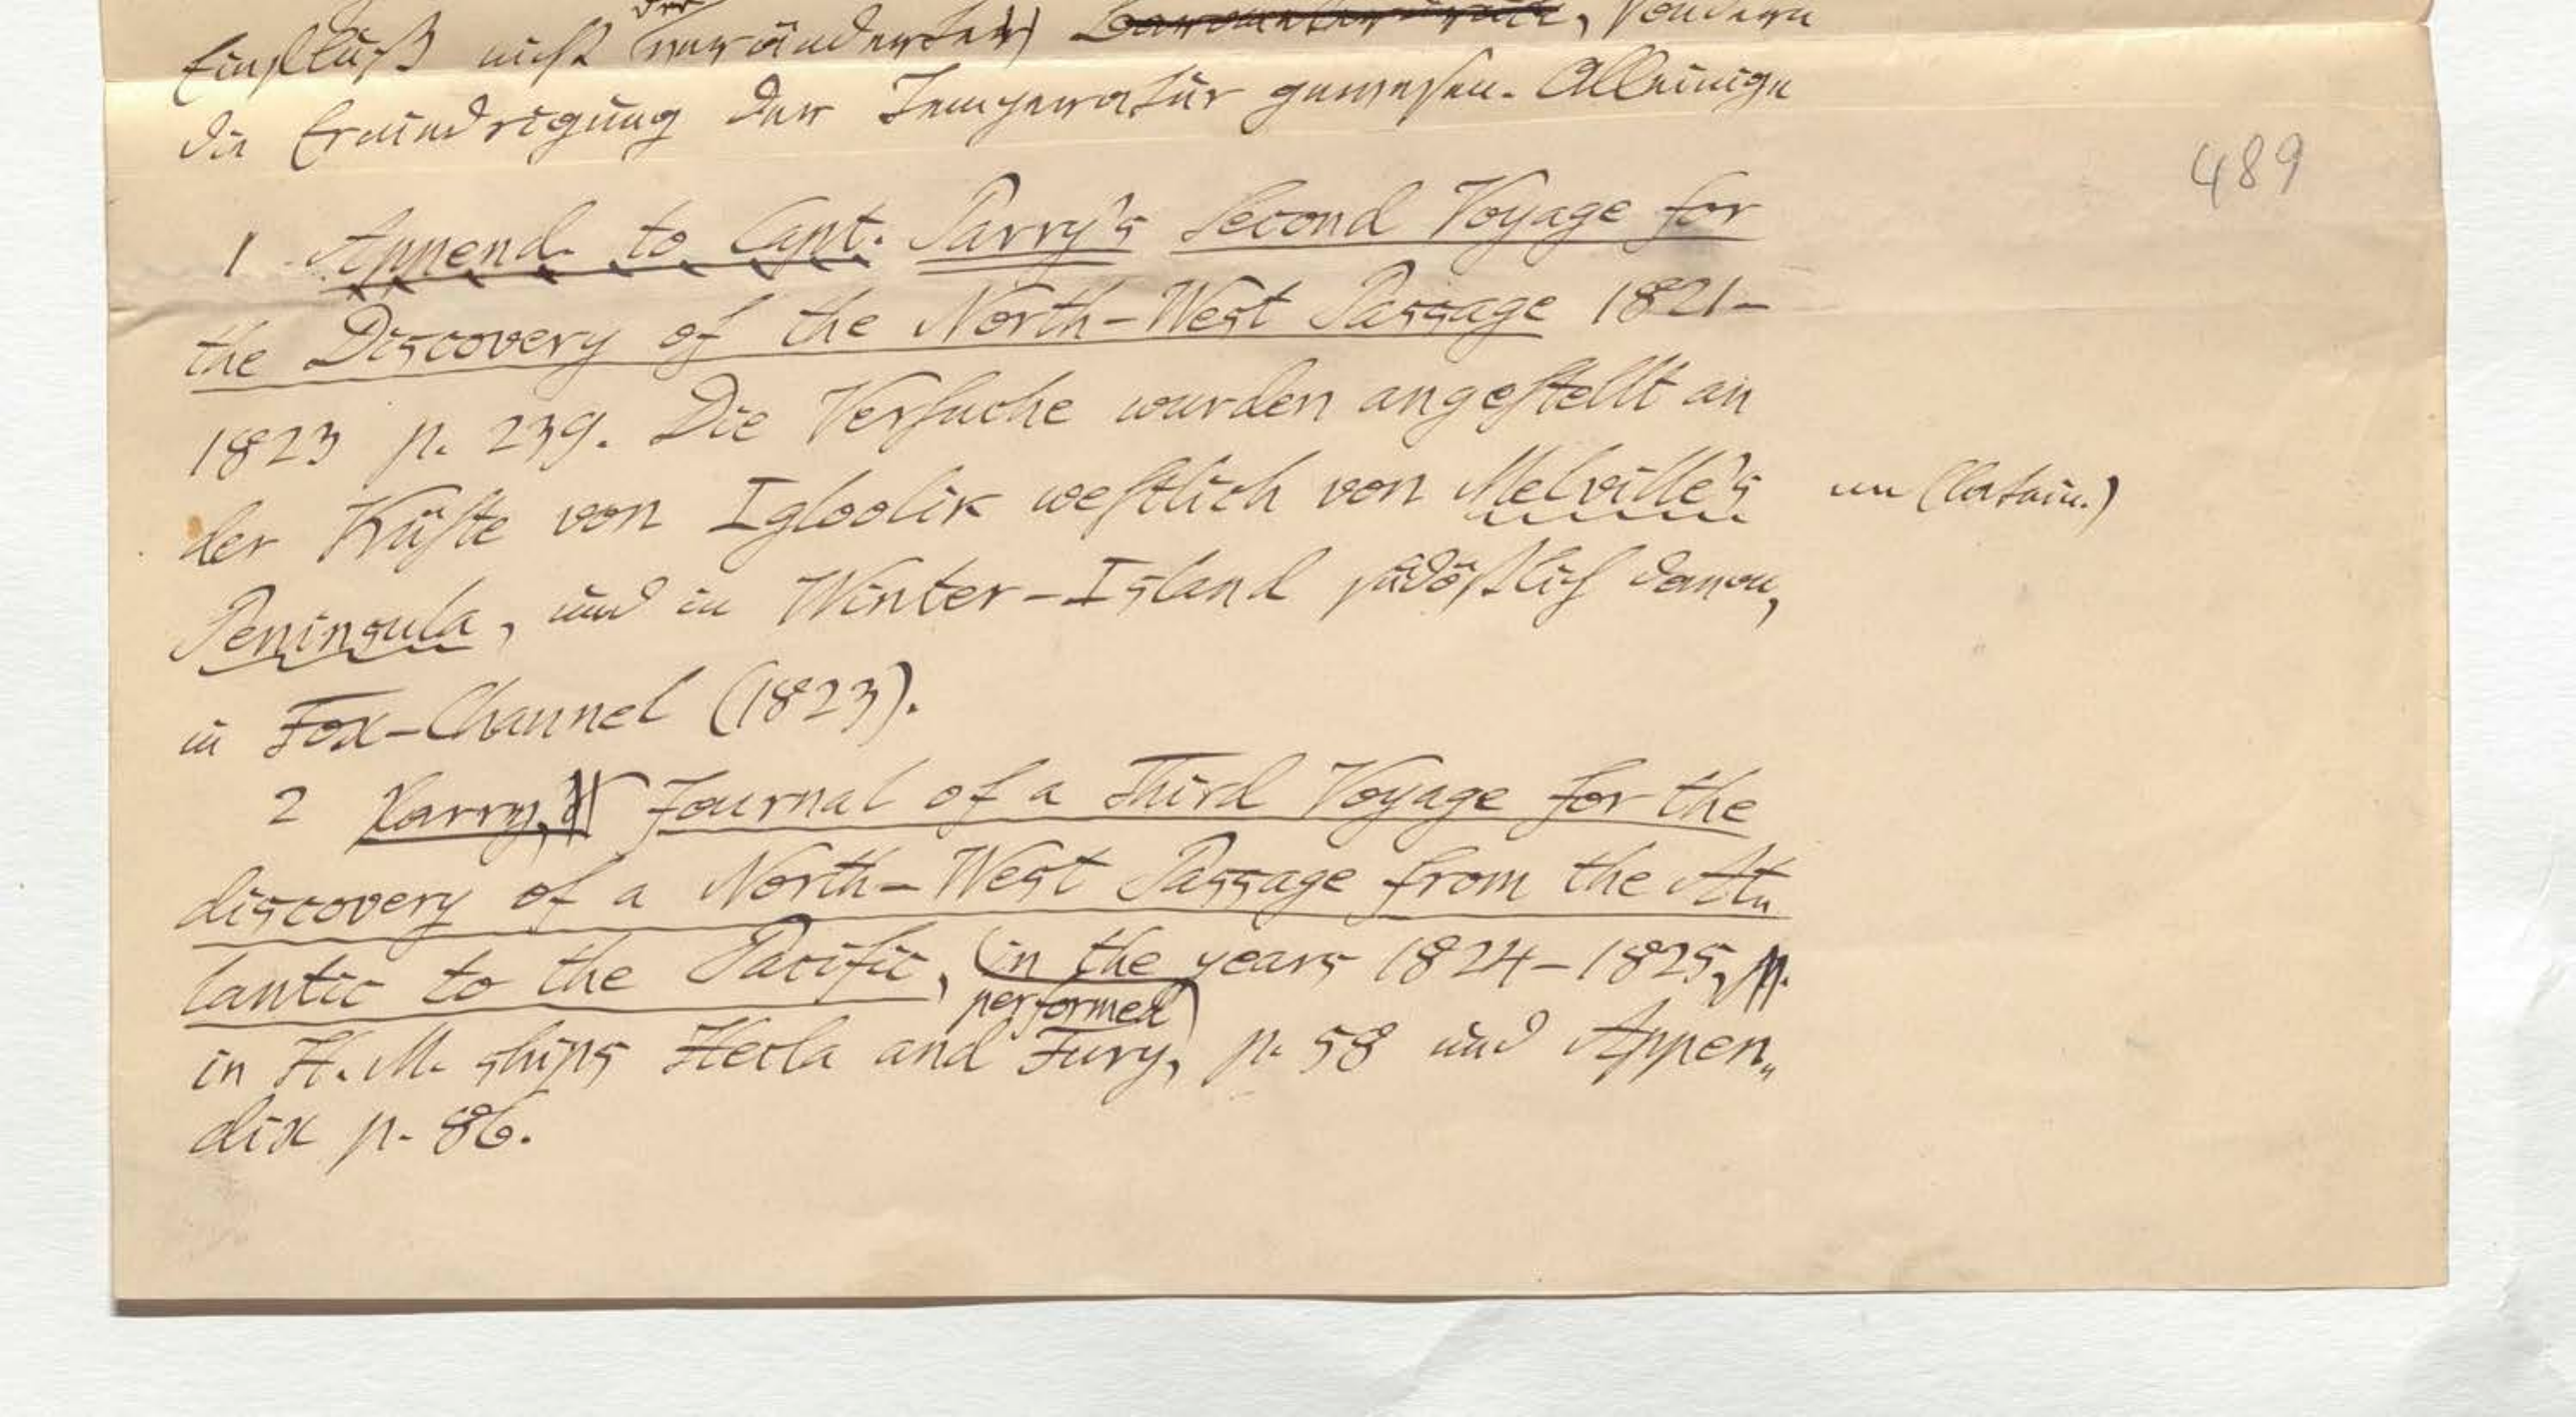 Einfluß nicht der veränderte, sondern
die Erniedrigung der Temperatur gewesen. Alleinige
489
1 Append. to Capt. Parry's Second Voyage for
the Discovery of the North-West Passage 1821-
1823 p. 239. Die Verſuche wurden angeſtellt an
der Küſte von Igloolik weſtlich von Melville's
un (latein.)
Peninsula, und in Winter-Island südöstlich davon,
in Fox-Channel (1823).
2 Parry, Journal of a Third Voyage for the
discovery of a North-West Passage from the At„
lantic to the Pacific, (in the years 1824-1825, p.
performed)
in H. M. ships Hecla and Fury, p. 58 und Appen„
dix p. 86.